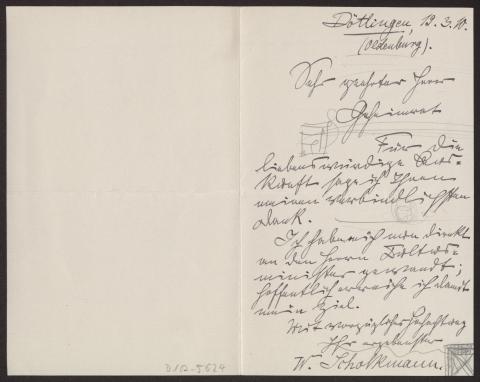 Dötlingen, 19.3.10.
(Oldenburg).
Sehr geehrter Herr
Geheimrat
Für die
liebenswürdige Aus-
kunft sage ich Ihnen
meinen verbindlichsten
Dank.
Ich habe mich nun direkt
an den Herrn Kultus-
minister gewandt;
hoffentlich erreiche ich damit
mein Ziel.
Mit vorzüglicher Hochachtung
Ihr ergebenster
W. Scholkmann.